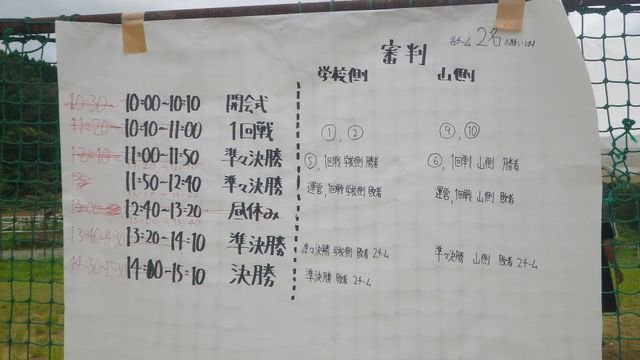 各チーム 2名 お願いします
審判
学校側 山側
10:30~ 10:00~10:10 開会式
11:20~ 10:10~11:00 1回戦 ①,② ⑨,⑩
12:10~ 11:00~11:50 準々決勝 ⑤,1回戦 学校側 勝者 ⑥,1回戦 山側 勝者
11:50~12:40 準々決勝 運営,1回戦 学校側 敗者 運営,1回戦 山側 敗者
13:00 12:40~13:20 昼休み
13:40~14:30 13:20~14:10 準決勝 準々決勝 学校側 敗者 2チーム 準々決勝 山側 敗者 2チーム
14:30~15:30 14:00~15:10 決勝 準決勝 敗者 2チーム